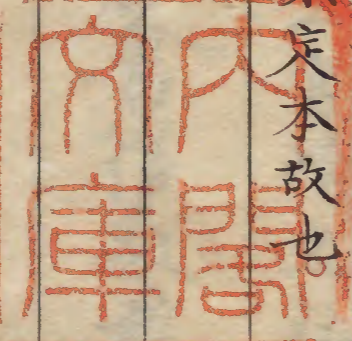 定本故也。
内閣
文庫